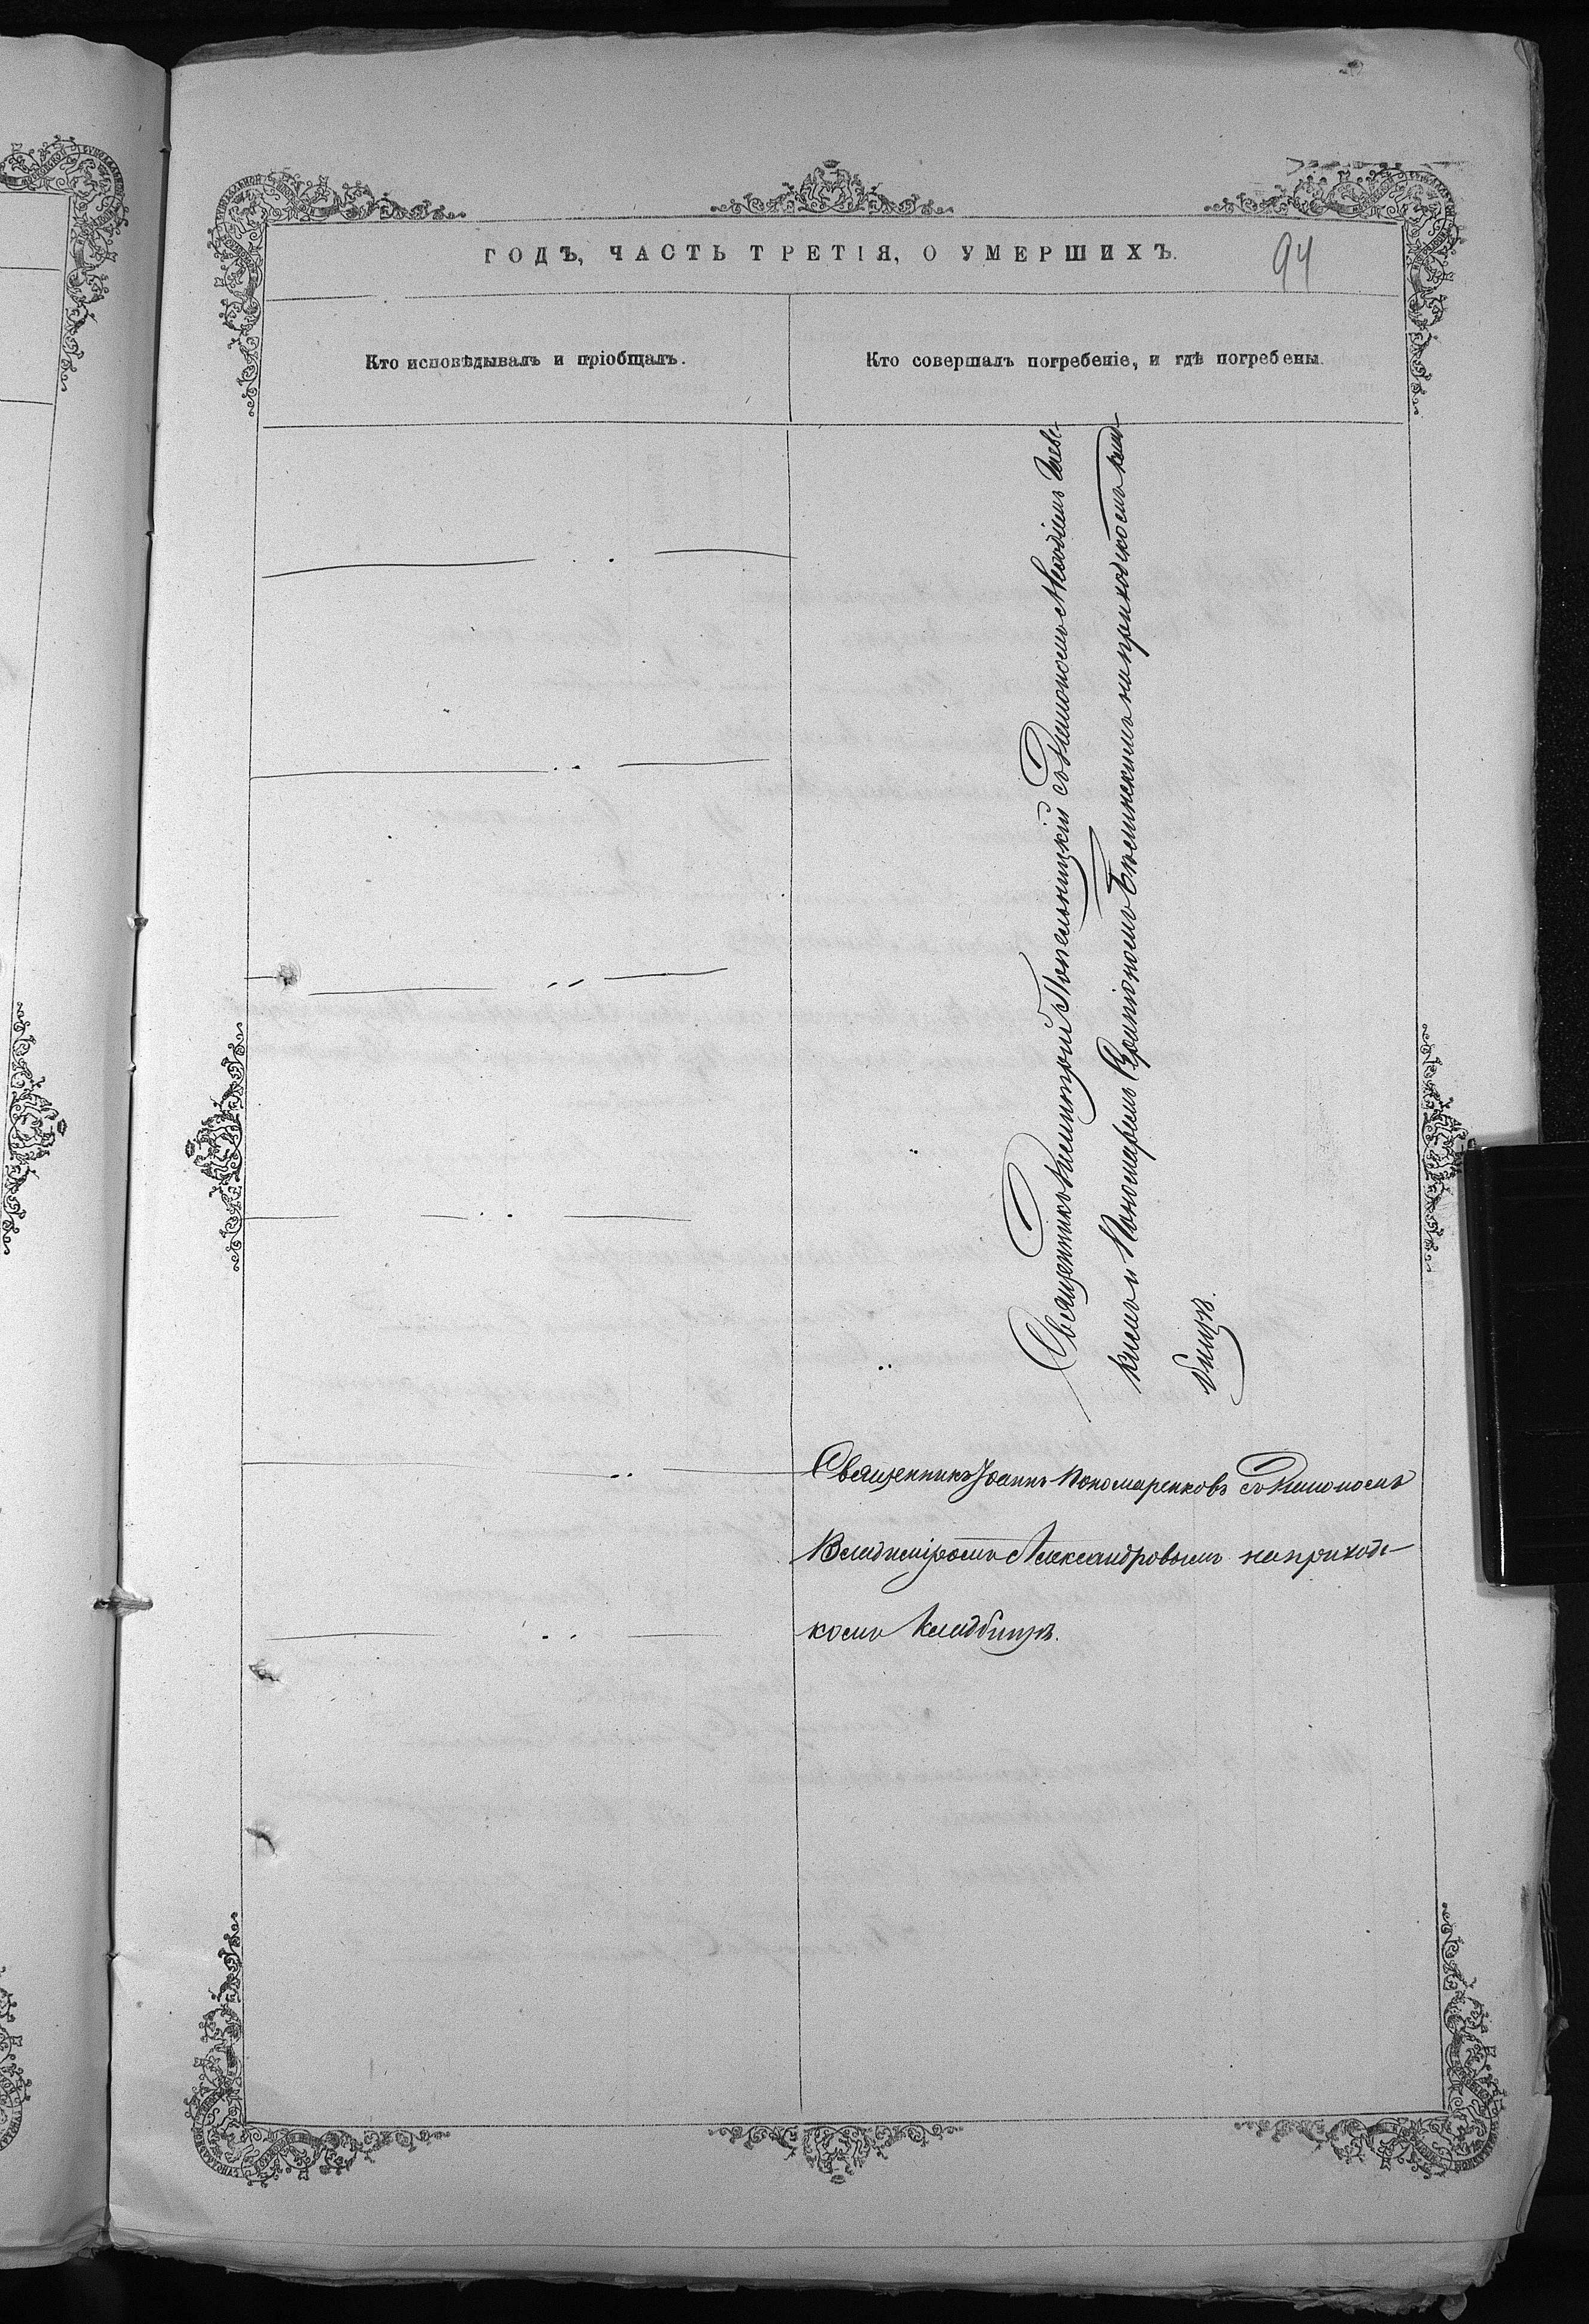 ГОДЪ, ЧАСТЬ ТРЕТІЯ, О УМЕРШИХЪ.
94
Кто исповѣдывалъ и пріобщалъ.
Кто совершалъ погребеніе, и гдѣ погребены.
Священникъ Димитрій Попельницкій съ Діакономъ Меѳодіемъ
и Пономаремъ на приходскомъ клад-
бищѣ.
Священникъ Іоаннъ Пономаренковъ съ Діакономъ
Владиміромъ Александровымъ на приход-
комъ кладбищѣ.